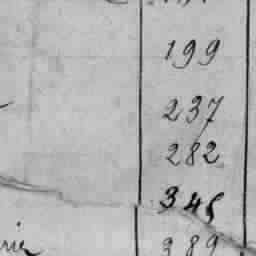 199
237
282
345
389